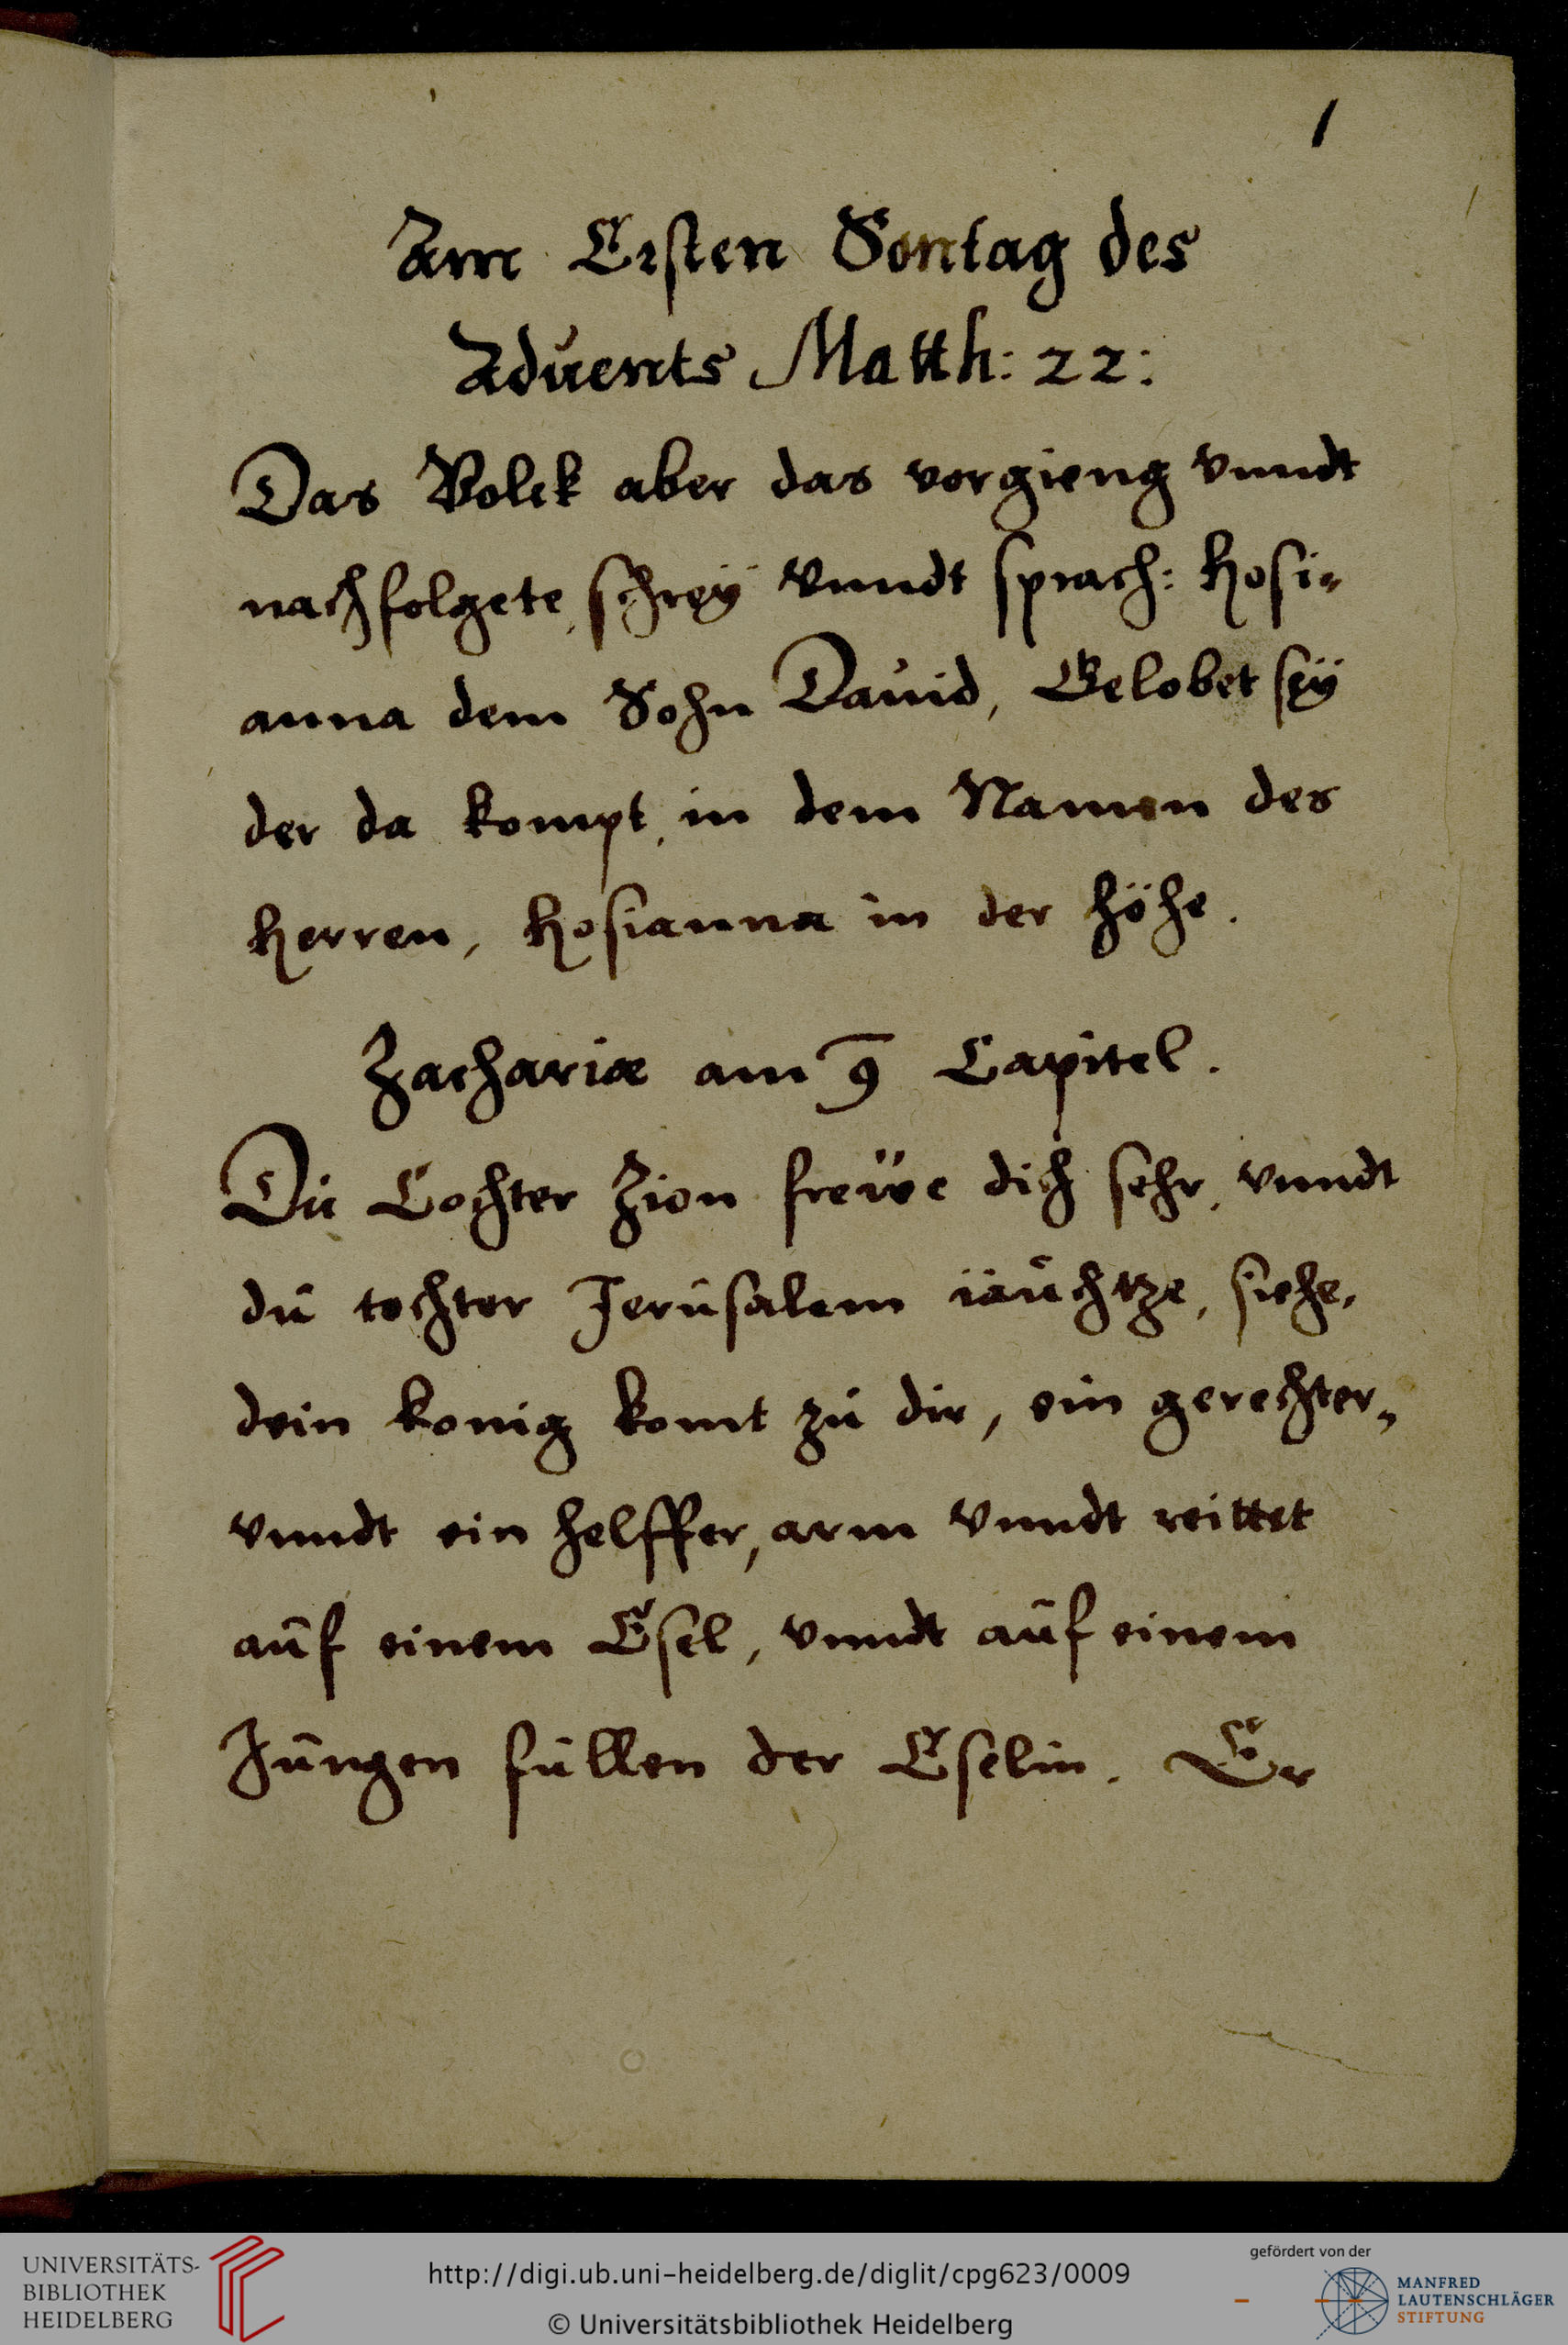 1
Am Ersten Sontag des
Aduents Matth: 22:
Das Volck aber das vorgieng vnndt
nachfolgete, schrey vnndt sprach: Hosi-
anna dem Sohn Dauid, Gelobet sey
der da kompt, in dem Namen des
Herren, Hosianna in der höhe.
Zachariæ am 9 Capitel.
Du Tochter Zion freüe dich sehr, vnndt
du tochter Jerusalem iäuchtze, siehe,
dein konig komt zu dir, ein gerechter,
vnndt ein helffer, arm vnndt reittet
auf einem Esel, vnndt auf einem
Jungen füllen der Eselin. Er
UNIVERSITÄTS-
BIBLIOTHEK
HEIDELBERG
http://digi.ub.uni-heidelberg.de/diglit/cpg623/0009
© Universitätsbibliothek Heidelberg
gefördert von der
MANFRED
LAUTENSCHLÄGER
STIFTUNG